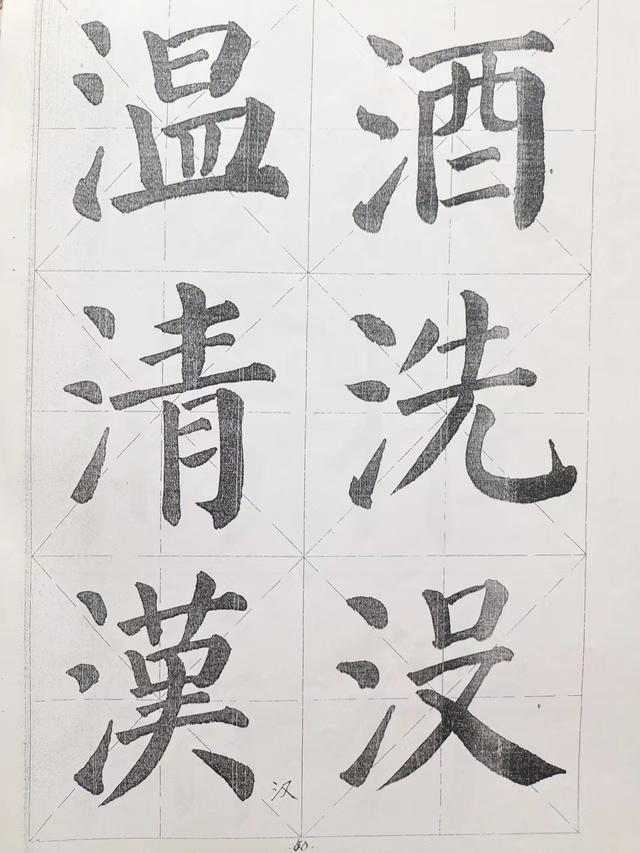 温酒
清洗
漢没
汉
60.